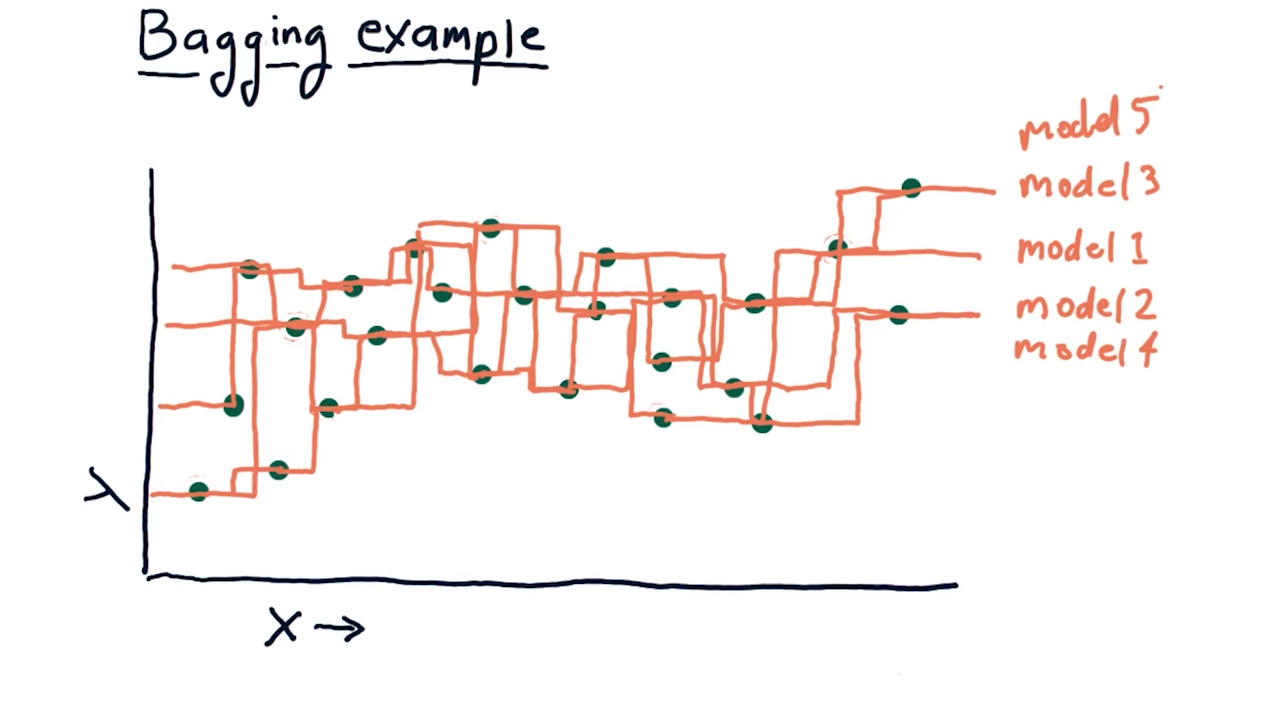 Bagging example
model 5
model 3
model 1
model 2
model 4
λ
X →